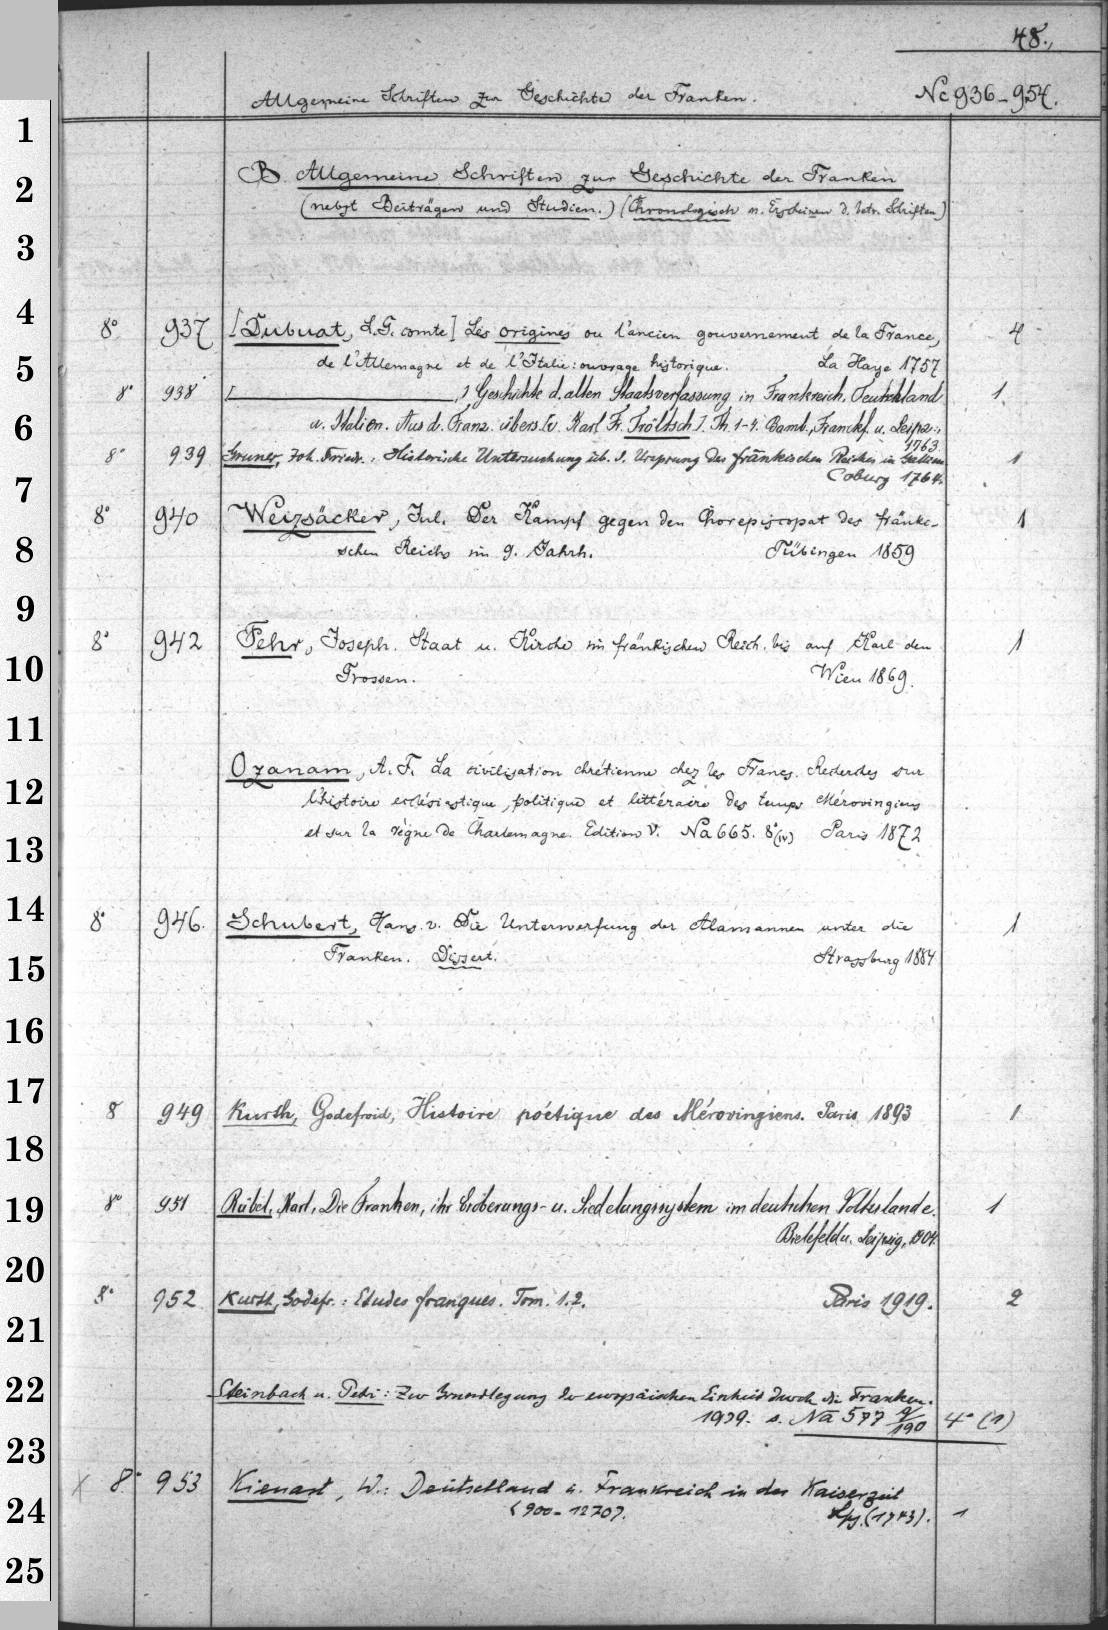 48.,
Allgemeine Schriften zur Geschichte der Franken. Nc 936-954.
B. Allgemeine Schriften zur Geschichte der Franken
(nebst Beiträgen und Studien.) (Chronologisch n. Erscheinen d. betr. Schriften)
8° 937 [Dubuat, L.G. comte] Les origines ou l'ancien gouvernement de la France, 4
de l'Allemagne et de l'Italie: ouvrage historique. La Haye 1757
8° 938 [ ,] Geschichte d. alten Staatsverfassung in Frankreich, Teutschland 1.
u. Italien. Aus d. Franz. übers. [v. Karl Fr. Tröltsch]. Th. 1-4. Bamb., Franckf. u. Leipz.,
1763
8° 939 Gruner, Joh. Friedr.: Historische Untersuchung üb. d. Ursprung des fränkischen Reiches in Gallien 1
Coburg 1764.
8° 940 Weizsäcker, Jul. Der Kampf gegen den Chorepiscopat des fränki- 1
schen Reichs im 9. Jahrh. Tübingen 1859
8° 942 Fehr, Joseph. Staat u. Kirche im fränkischen Reich bis auf Karl den 1
Grossen. Wien 1869.
Ozanam, A. F. La civilisation chrétienne chez les Francs. Recherches sur
l'histoire ecclésiastique, politique et littéraire des temps Mérovingiens
et sur la règne de Charlemagne. Edition V. Na 665. 8°(IV) Paris 1872
8° 946. Schubert, Hans v. Die Unterwerfung der Alamannen unter die 1
Franken. Dissert. Strassburg 1884
8 949 Kurth, Godefroid, Histoire poétique des Mérovingiens. Paris 1893 1
8° 951 Rübel, Karl, Die Franken, ihr Eroberungs- u. Siedelungssystem im deutschen Volkslande. 1
Bielefeld u. Leipzig, 1904.
8° 952 Kurth, Godefr.: Etudes franques. Tom. 1.2. Paris 1919. 2
Steinbach u. Petri: Zur Grundlegung der europäischen Einheit durch die Franken.
1939. s. Na 577 9/190 4° (1)
X 8° 953 Kienast, W.: Deutschland u. Frankreich in der Kaiserzeit
(900-1270). Lpz. (1943). 1
1
2
3
4
5
6
7
8
9
10
11
12
13
14
15
16
17
18
19
20
21
22
23
24
25